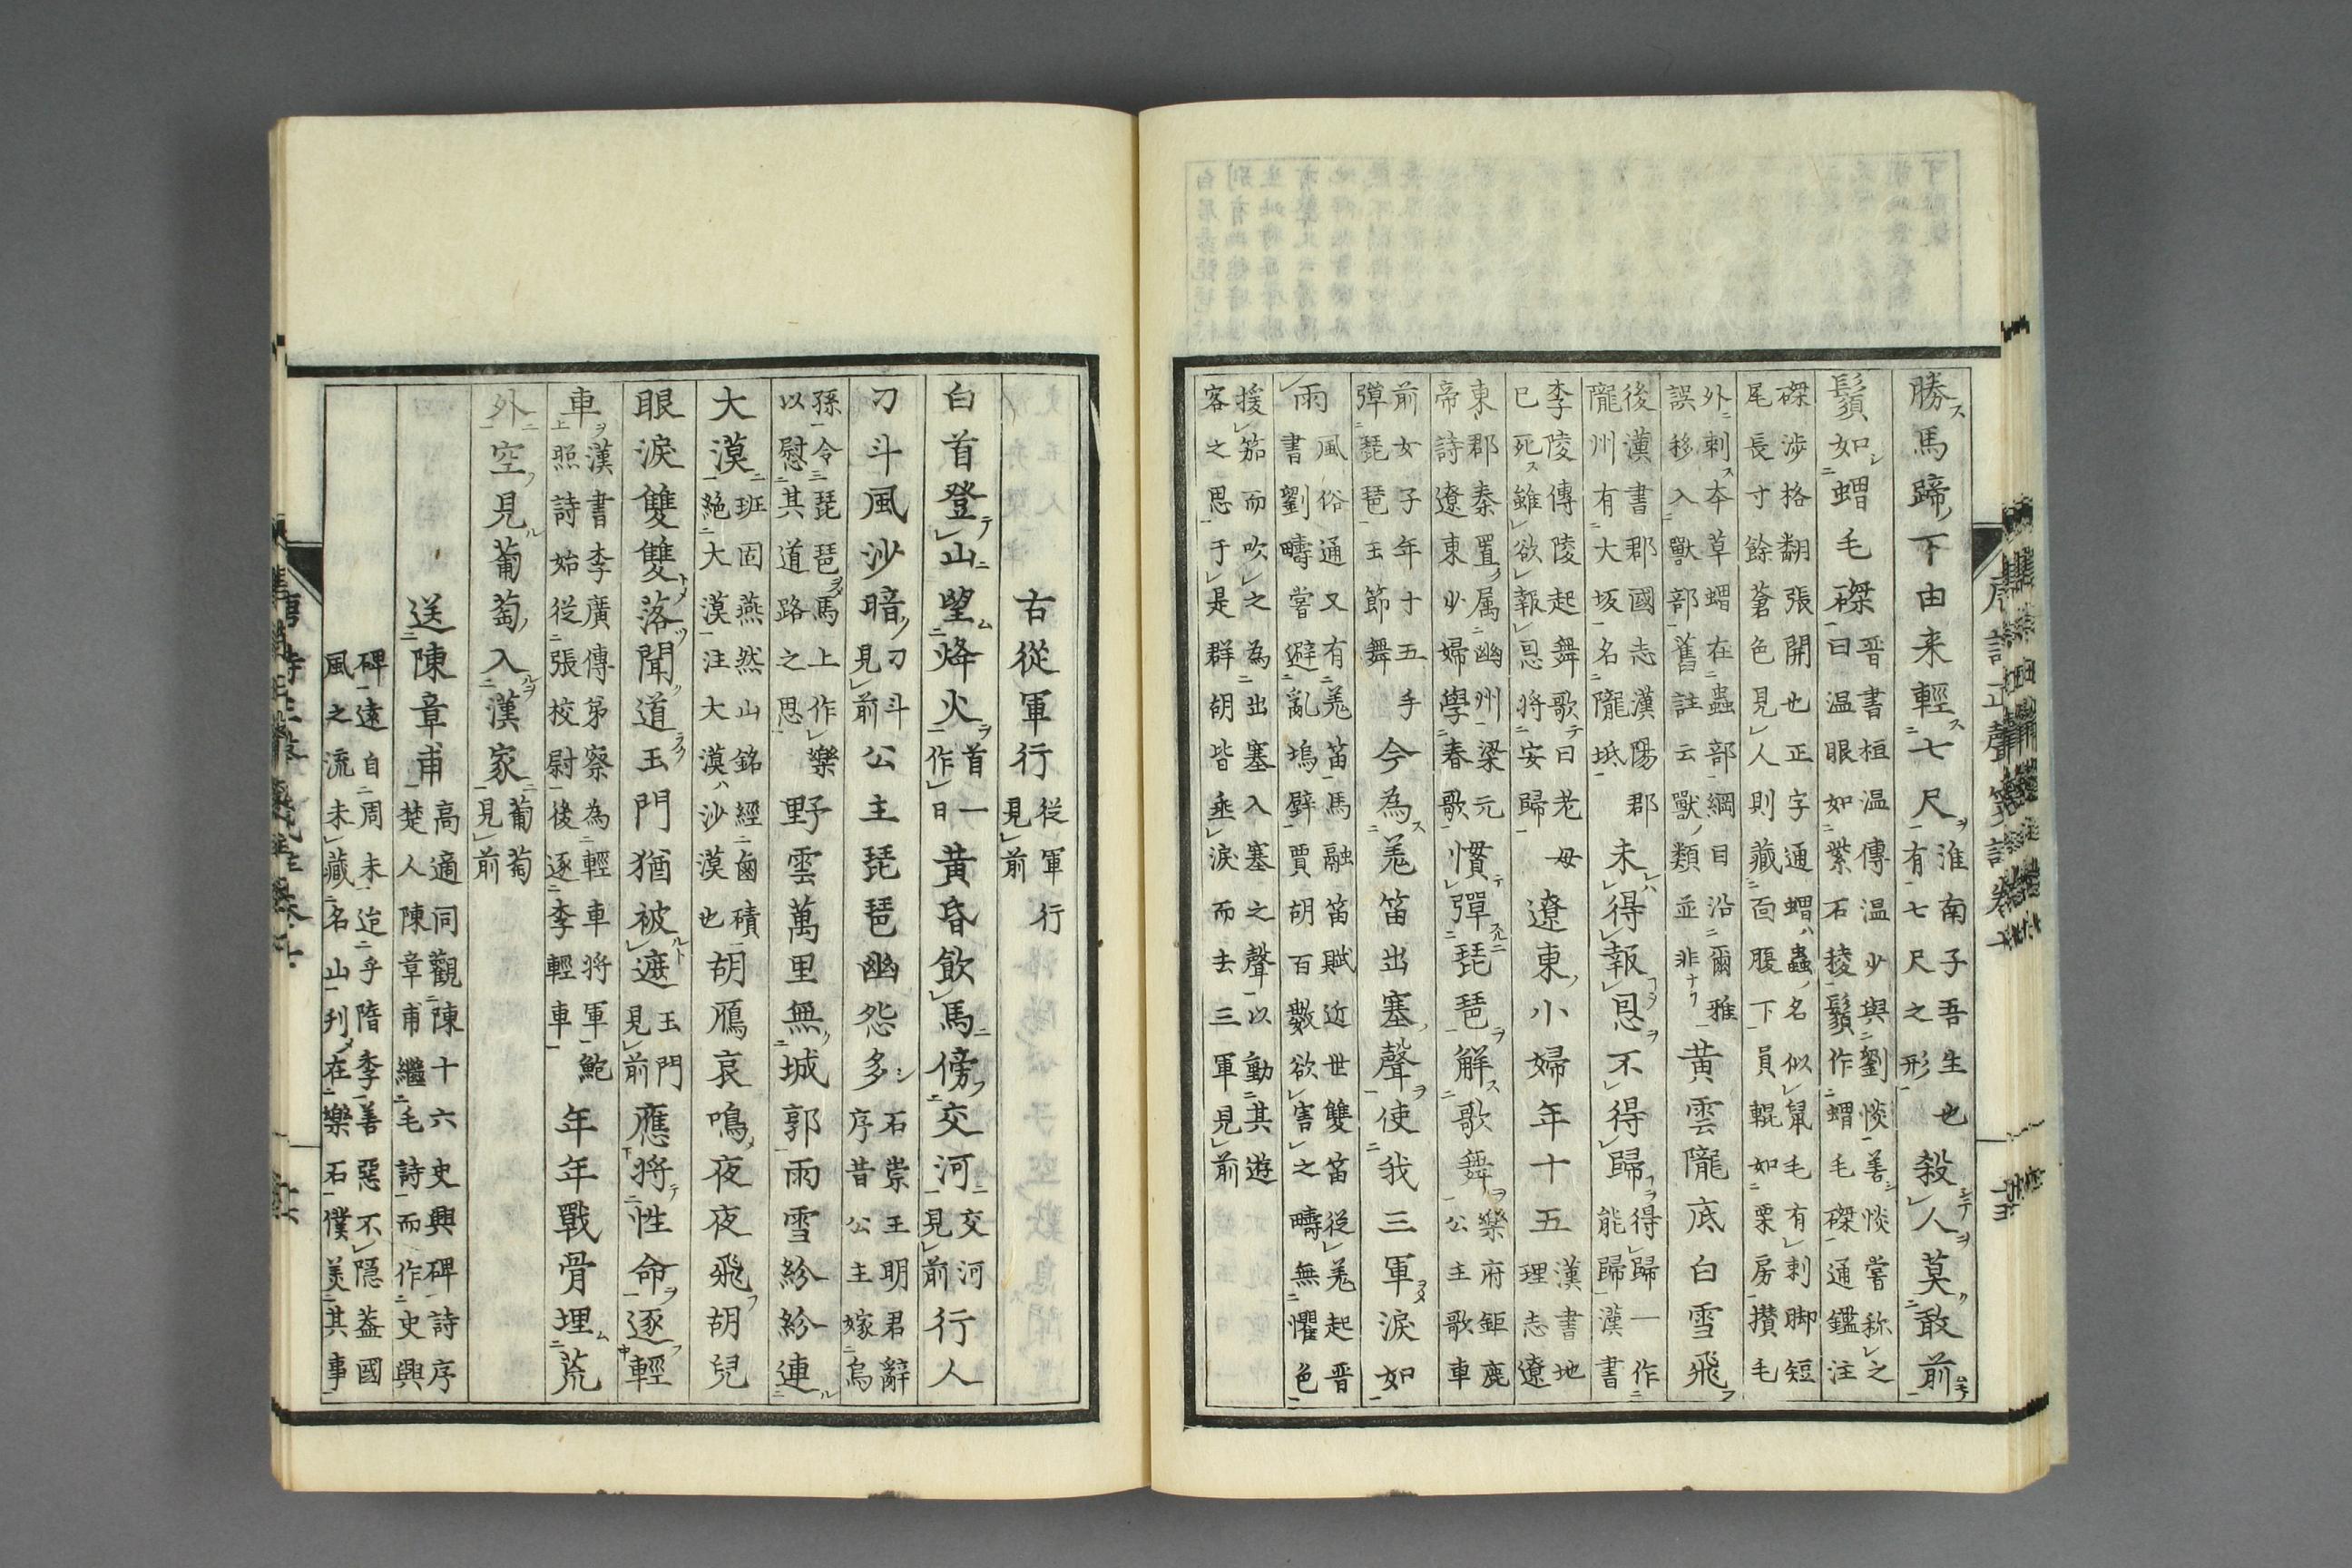 勝馬蹄下由来輕七尺淮南子吾生也有七尺之形殺人莫敢前
鬚如蝟毛磔晋書桓温傳温少與劉惔善惔嘗称之曰温眼如紫石稜鬚作蝟毛磔通鑑注
磔渉格翻張開也正字通蝟蟲名似鼠毛有刺脚短尾長寸餘蒼色見人則藏面腹下員輥如栗房攢毛
外刺本草蝟在蟲部綱目沿爾雅誤移入獸部舊註云獸類並非黄雲隴底白雪飛
後漢書郡國志漢陽郡隴州有大坂名隴坻未得報恩不得歸得歸一作能歸漢書
李陵傳陵起舞歌曰老母已死雖欲報恩将安歸遼東小婦年十五漢書地理志遼
東郡秦置属幽州梁元帝詩遼東少婦學春歌慣彈琵琶解歌舞樂府鉅鹿公主歌車
前女子年十五手彈琵琶玉節舞今為羗笛出塞聲使我三軍淚如
雨風俗通又有羗笛馬融笛賦近世雙笛從羗起晋書劉疇嘗避亂塢壁賈胡百數欲害之疇無懼色
援笳而吹之為出塞入塞之聲以動其遊客之思于是群胡皆垂淚而去三軍見前
古從軍行從軍行見前
白首登山望烽火首一作日黄昏飲馬傍交河交河見前行人
刁斗風沙暗刁斗見前公主琵琶幽怨多石崇王明君辭序昔公主嫁烏
孫令琵琶馬上作樂以慰其道路之思野雲萬里無城郭雨雪紛紛連
大漠班固燕然山銘經鹵磧絶大漠注大漠沙漠也胡鴈哀鳴夜夜飛胡兒
眼淚雙雙落聞道玉門猶被遮玉門見前應将性命逐輕
車漢書李廣傳弟察為輕車将軍鮑照詩始從張校尉後逐李輕車年年戰骨埋荒
外空見葡萄入漢家葡萄見前
送陳章甫高適同觀陳十六史興碑詩序楚人陳章甫繼毛詩而作史興
碑遠自周未迨乎隋李善惡不隠蓋國風之流未藏名山刋在樂石僕美其事